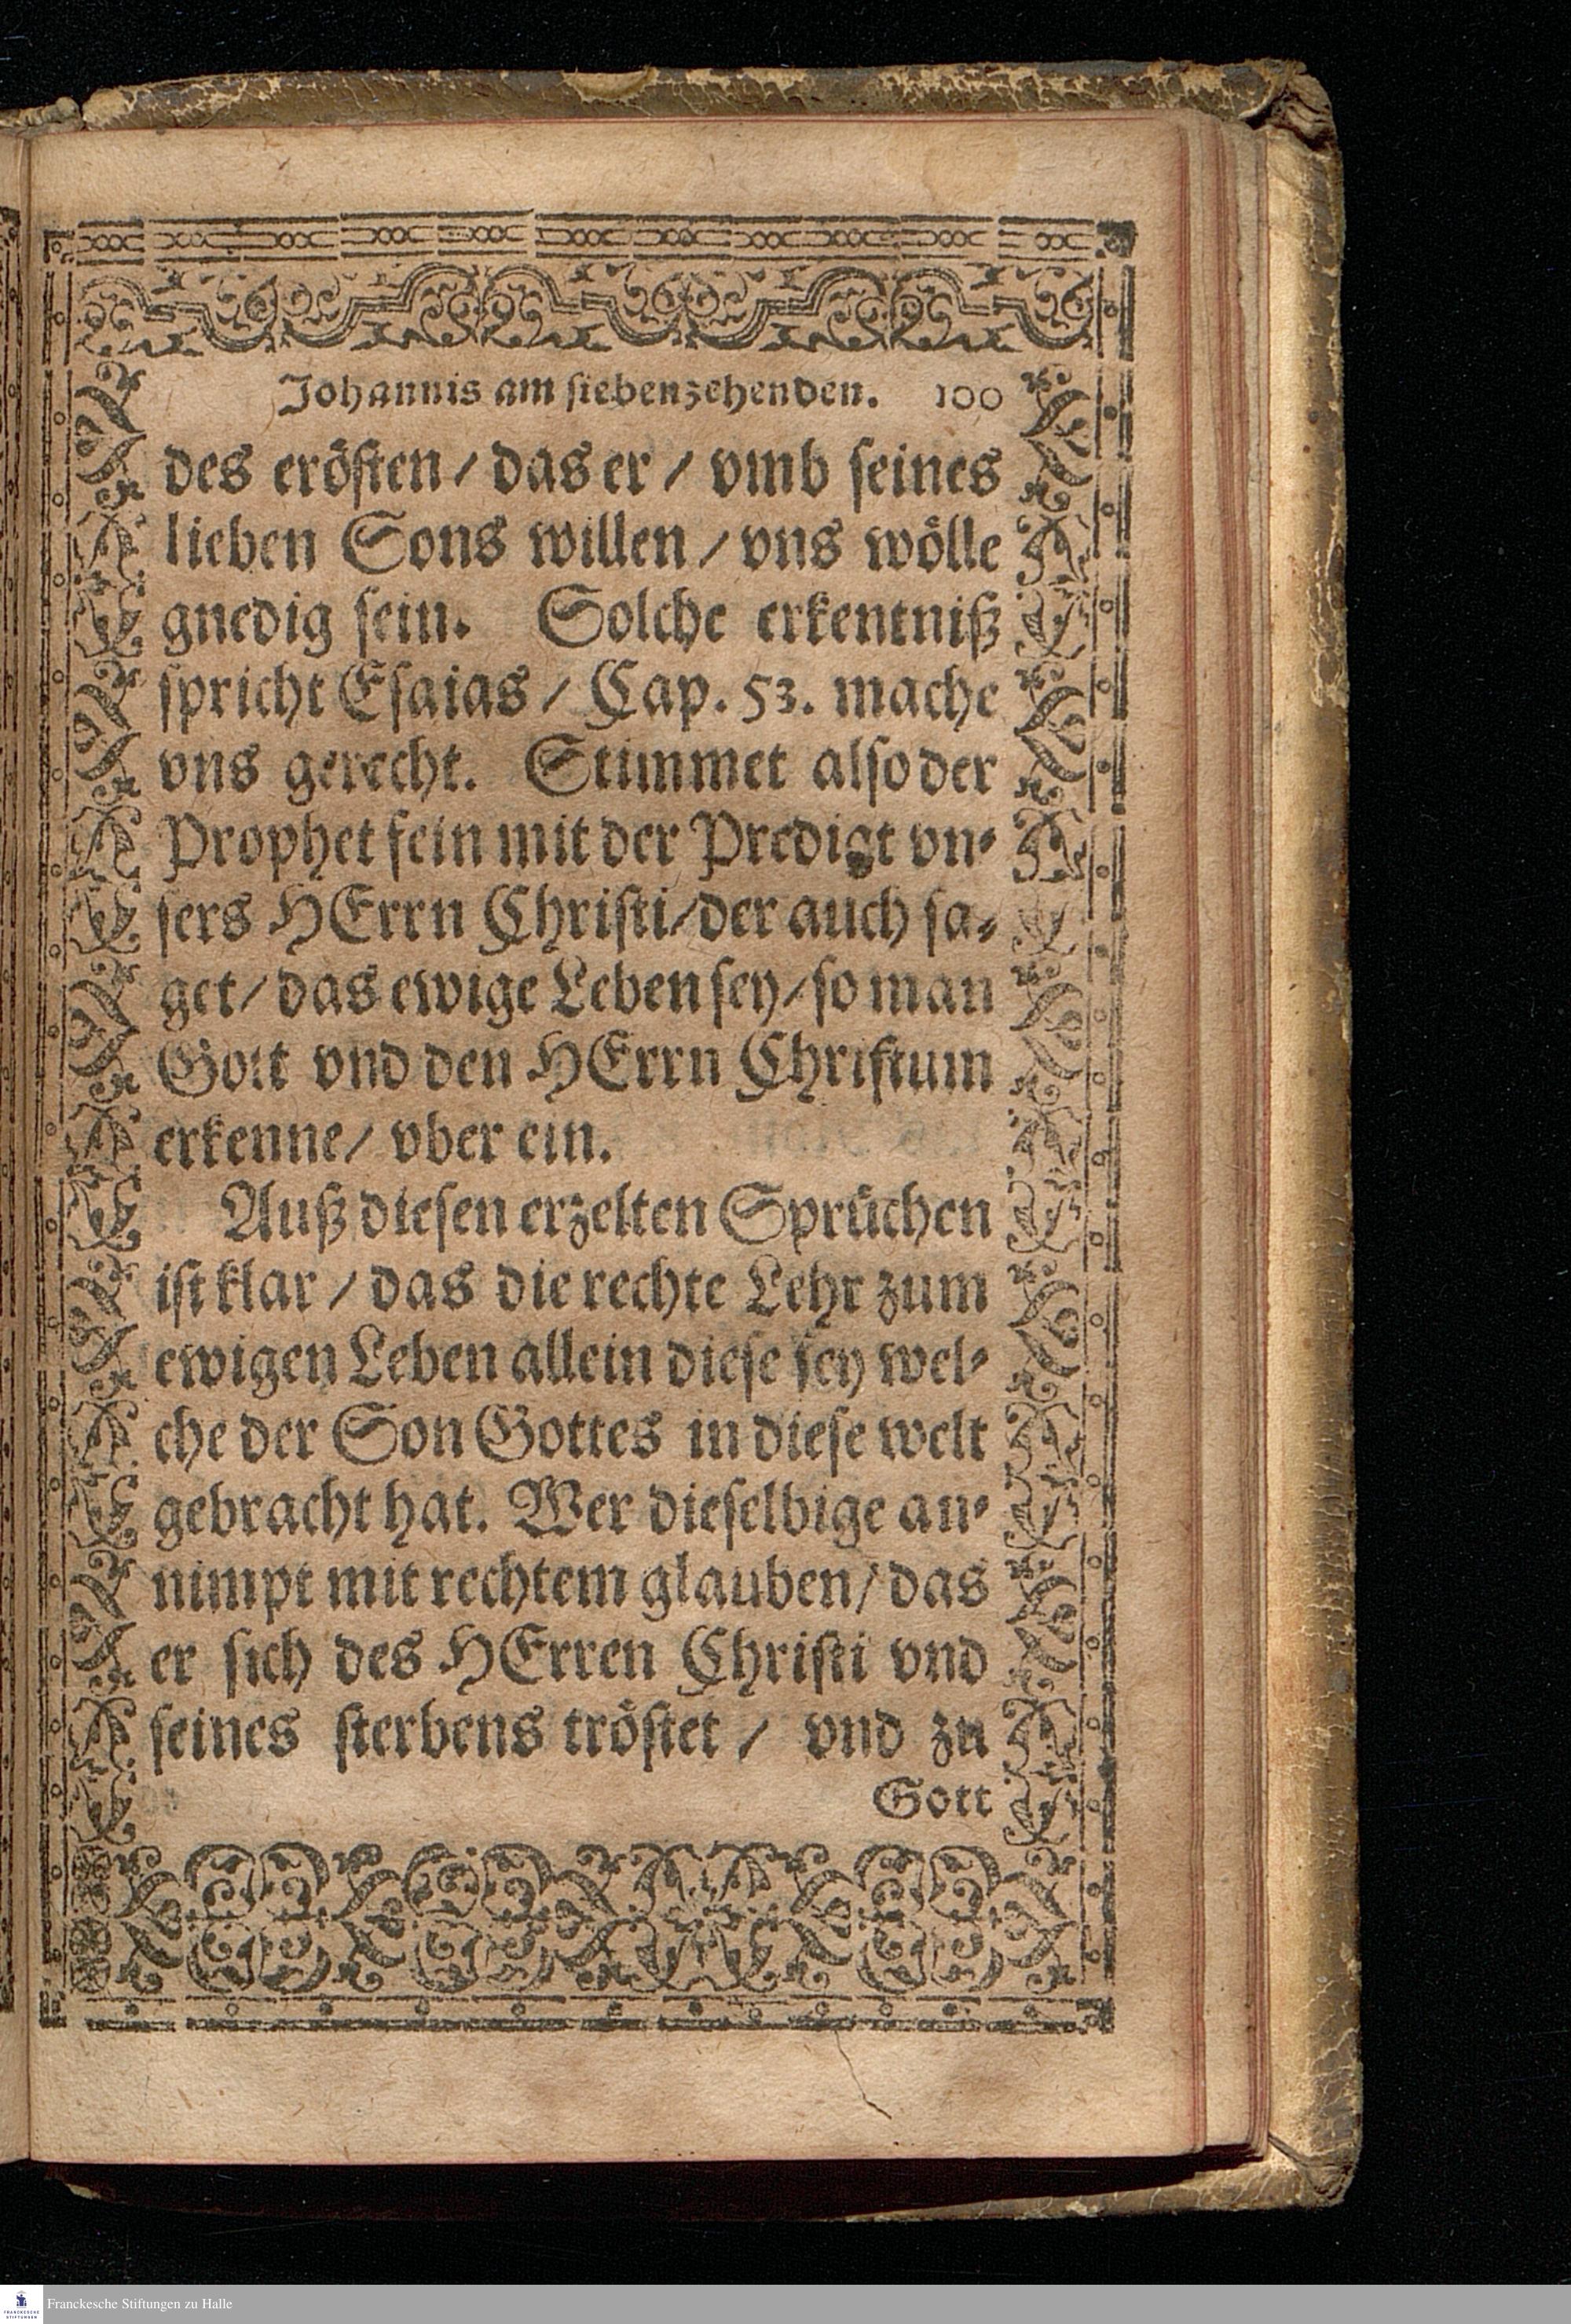 Johannis am siebenzehenden. 100
des erösten / das er / vmb seines
lieben Sons willen / vns wölle
gnedig sein. Solche erkentniß
spricht Esaias / Cap. 53. mache
vns gerecht. Stimmet also der
Prophet fein mit der Predigt vn-
sers HErrn Christi / der auch sa-
get / das ewige Leben sey / so man
Gott vnd den HErrn Christum
erkenne / vber ein.
Auß diesen erzelten Sprüchen
ist klar / das die rechte Lehr zum
ewigen Leben allein diese sey wel-
che der Son Gottes in diese welt
gebracht hat. Wer dieselbige an-
nimpt mit rechtem glauben / das
er sich des HErren Christi vnd
seines sterbens tröstet / vnd zu
Gott
FRANCKESCHE STIFTUNGEN
Franckesche Stiftungen zu Halle